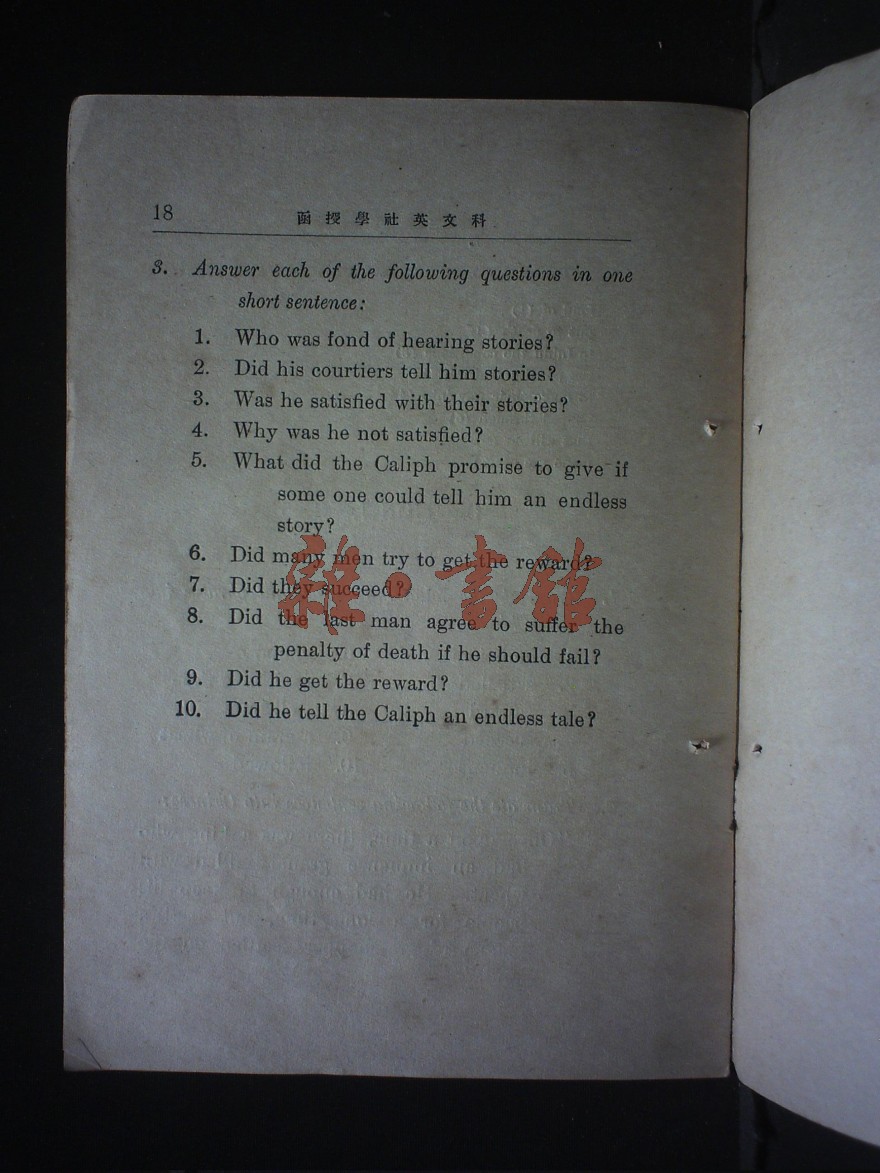 18
函授學社英文科
3. Answer each of the following questions in one
short sentence:
1. Who was fond of hearing stories?
2. Did his courtiers tell him stories?
3. Was he satisfied with their stories?
4. Why was he not satisfied?
5. What did the Caliph promise to give if
some one could tell him an endless
story?
6. Did many men try to get the reward?
7. Did they succeed?
8. Did the last man agree to suffer the
penalty of death if he should fail?
9. Did he get the reward?
10. Did he tell the Caliph an endless tale?
雜·書館